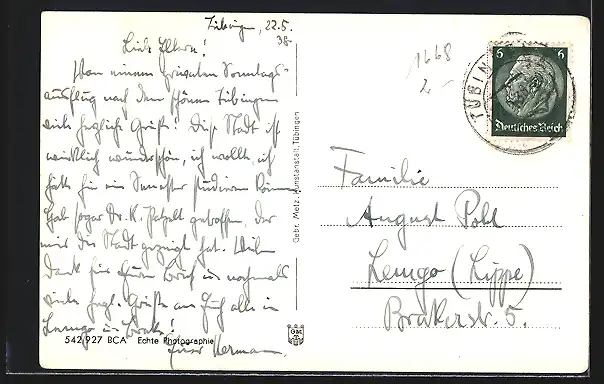 Tübingen, 22.5.
38.
Liebe Eltern!
Von einem privaten Sonntags-
ausflug nach dem schönen Tübingen
viele herzliche Grüße! Diese Stadt ist
wirklich wunderschön, ich wollte, ich
hätte hier ein Semester studieren können
Hab sogar Dr. K. getroffen, der
mir die Stadt gezeigt hat. Vielen
Dank für Euren Brief u. nochmals
viele herzl. Grüße an Euch alle in
Lemgo u.
Euer Hermann
542 927 BCA Echte Photographie
Gebr. Metz, Kunstanstalt, Tübingen
1668
2,-
6 6
Deutsches Reich
TÜBIN
Familie
August Poll
Lemgo (Lippe)
Brakerstr. 5.